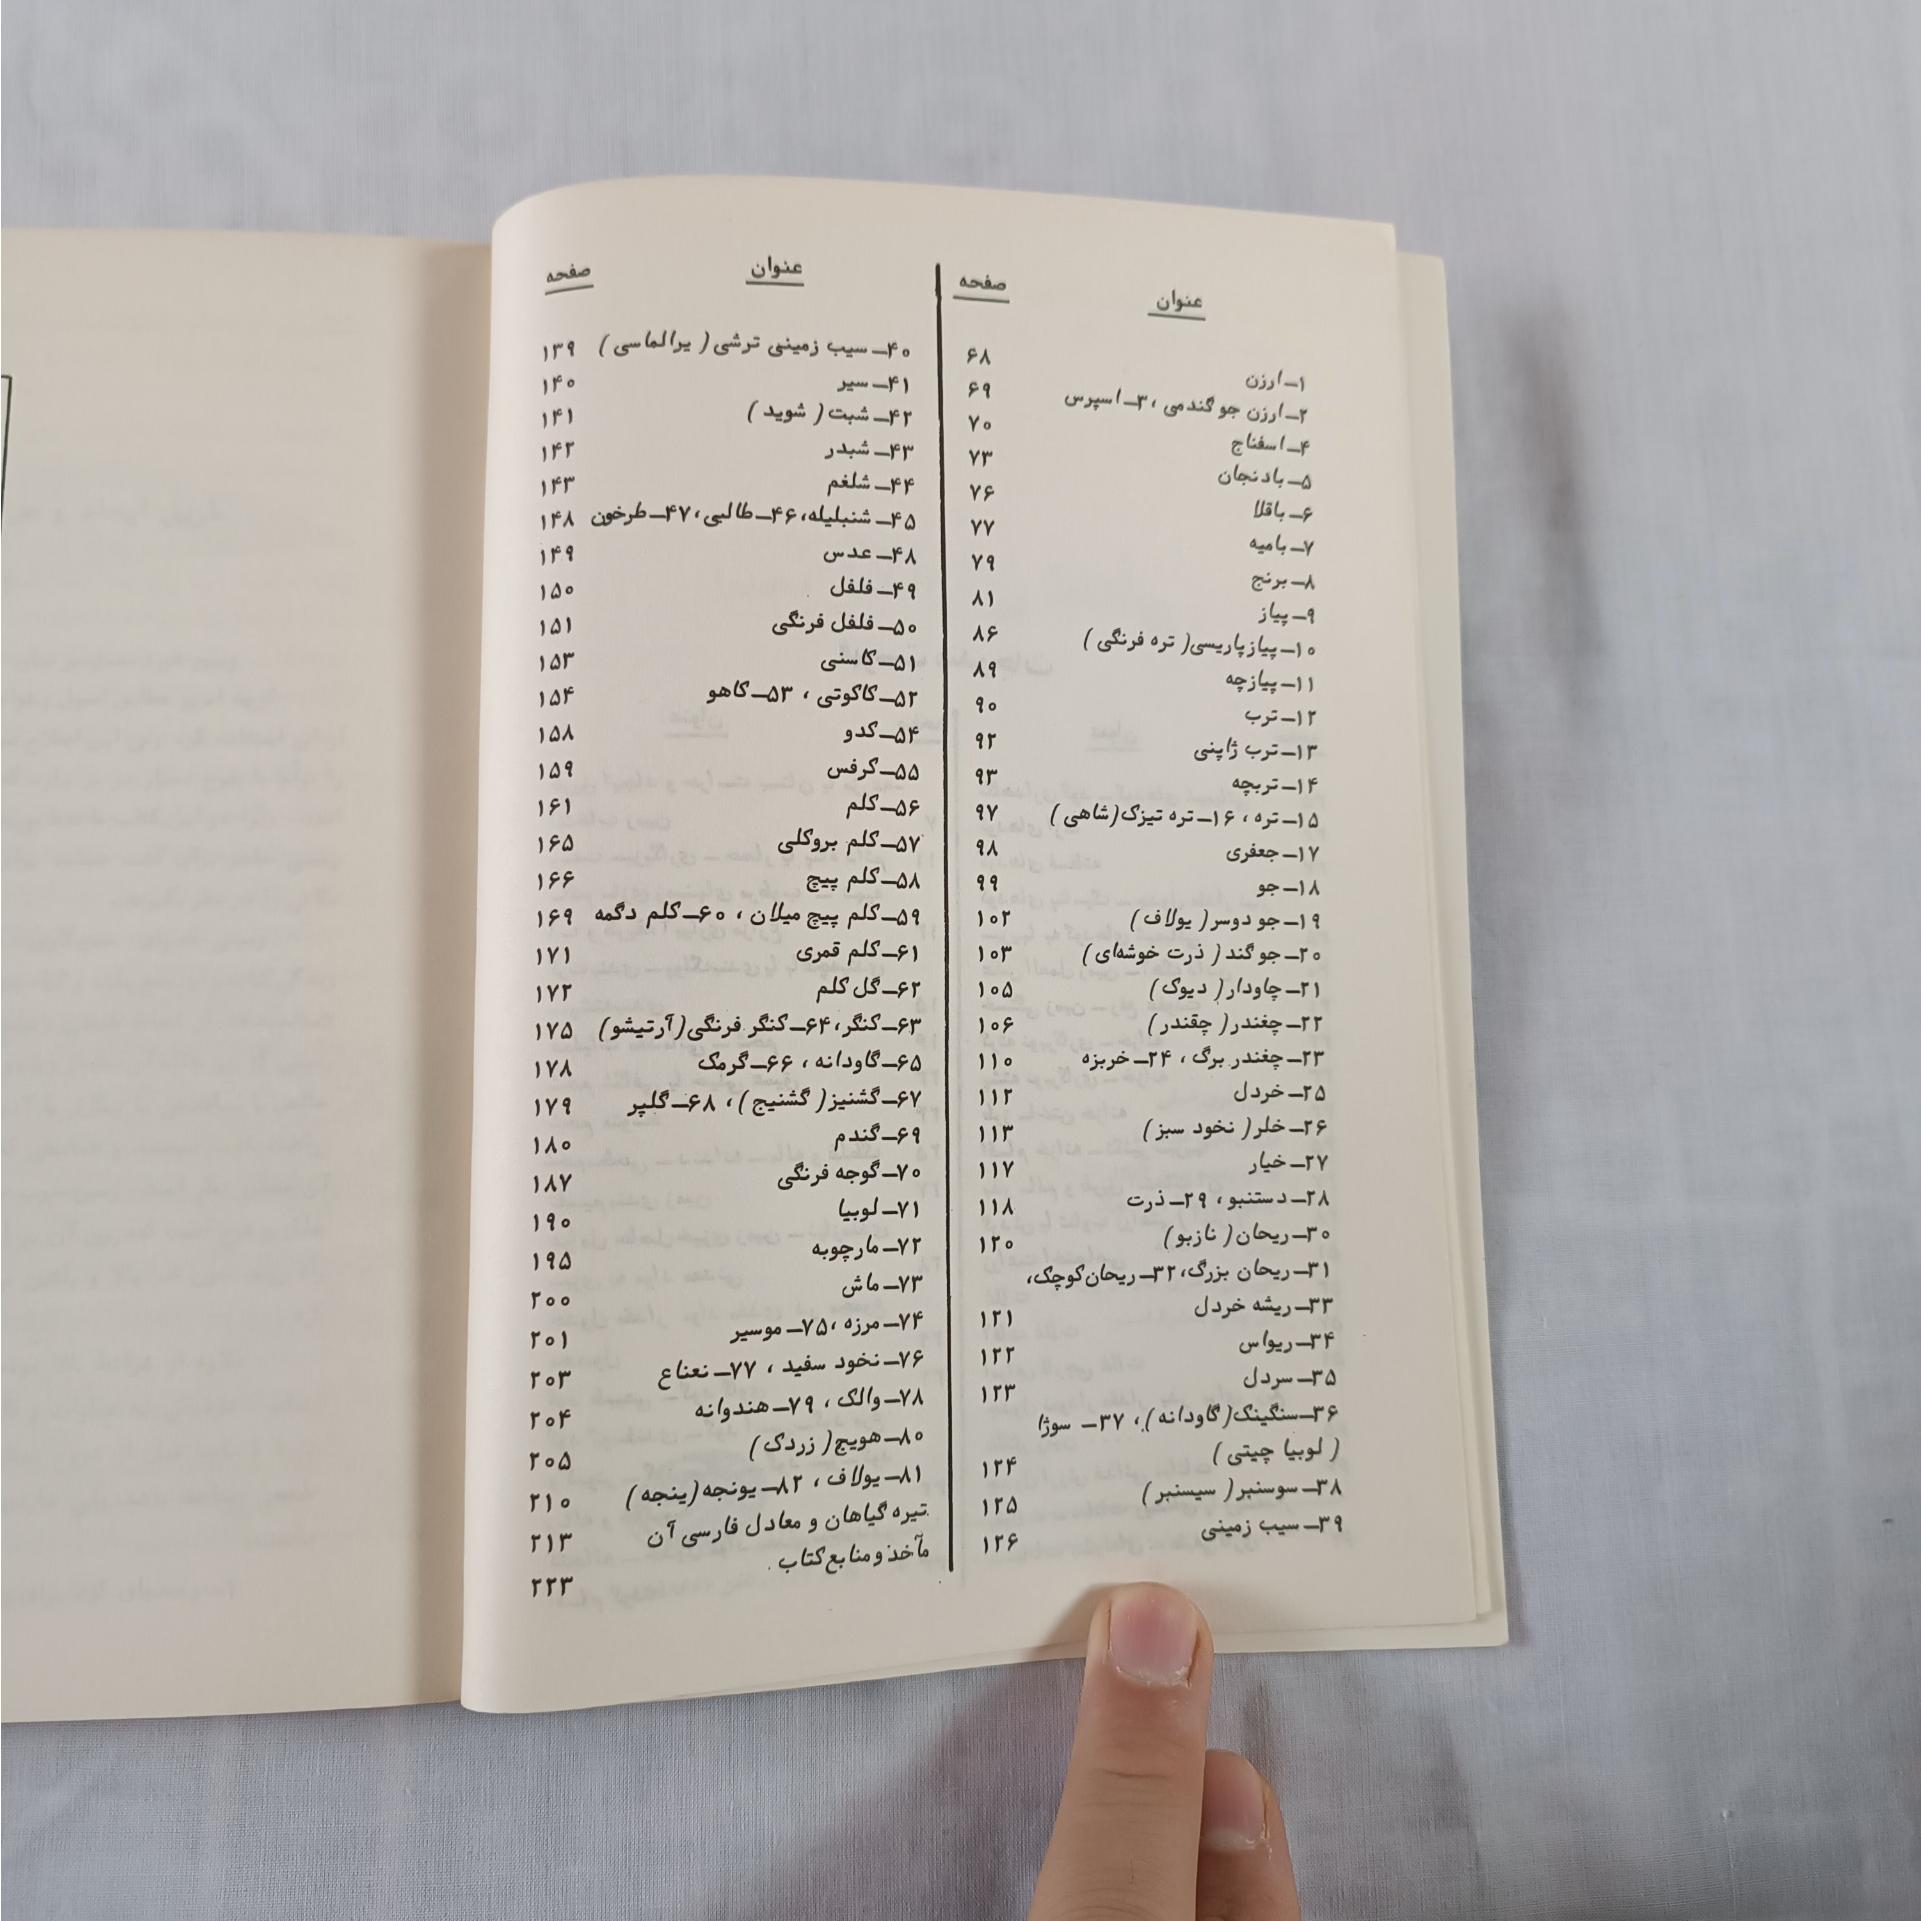 عنوان صفحه
۱ـ ارزن ۶۸
۲ـ ارزن جو گندمی ، ۳ـ اسپرس ۶۹
۴ـ اسفناج ۷۰
۵ـ بادنجان ۷۳
۶ـ باقلا ۷۶
۷ـ بامیه ۷۷
۸ـ برنج ۷۹
۹ـ پیاز ۸۱
۱۰ـ پیازپاریسی( تره فرنگی ) ۸۶
۱۱ـ پیازچه ۸۹
۱۲ـ ترب ۹۰
۱۳ـ ترب ژاپنی ۹۲
۱۴ـ تربچه ۹۳
۱۵ـ تره ، ۱۶ـ تره تیزک(شاهی ) ۹۷
۱۷ـ جعفری ۹۸
۱۸ـ جو ۹۹
۱۹ـ جو دوسر( یولاف ) ۱۰۲
۲۰ـ جو گند ( ذرت خوشه‌ای ) ۱۰۳
۲۱ـ چاودار( دیوک ) ۱۰۵
۲۲ـ چغندر( چقندر ) ۱۰۶
۲۳ـ چغندر برگ ، ۲۴ـ خربزه ۱۱۰
۲۵ـ خردل ۱۱۲
۲۶ـ خلر( نخود سبز ) ۱۱۳
۲۷ـ خیار ۱۱۷
۲۸ـ دستنبو ، ۲۹ـ ذرت ۱۱۸
۳۰ـ ریحان( نازبو ) ۱۲۰
۳۱ـ ریحان بزرگ، ۳۲ـ ریحان‌کوچک،
۳۳ـ ریشه خردل ۱۲۱
۳۴ـ ریواس ۱۲۲
۳۵ـ سردل ۱۲۳
۳۶ـ سنگینک(گاودانه )، ۳۷ـ سوژا
( لوبیا چیتی ) ۱۲۴
۳۸ـ سوسنبر( سیسنبر ) ۱۲۵
۳۹ـ سیب زمینی ۱۲۶
عنوان صفحه
۴۰ـ سیب زمینی ترشی ( یرالماسی ) ۱۳۹
۴۱ـ سیر ۱۴۰
۴۲ـ شبت ( شوید ) ۱۴۱
۴۳ـ شبدر ۱۴۲
۴۴ـ شلغم ۱۴۳
۴۵ـ شنبلیله، ۴۶ـ طالبی، ۴۷ـ طرخون ۱۴۸
۴۸ـ عدس ۱۴۹
۴۹ـ فلفل ۱۵۰
۵۰ـ فلفل فرنگی ۱۵۱
۵۱ـ کاسنی ۱۵۳
۵۲ـ کاکوتی ، ۵۳ـ کاهو ۱۵۴
۵۴ـ کدو ۱۵۸
۵۵ـ کرفس ۱۵۹
۵۶ـ کلم ۱۶۱
۵۷ـ کلم بروکلی ۱۶۵
۵۸ـ کلم پیچ ۱۶۶
۵۹ـ کلم پیچ میلان ، ۶۰ـ کلم دگمه ۱۶۹
۶۱ـ کلم قمری ۱۷۱
۶۲ـ گل کلم ۱۷۲
۶۳ـ کنگر، ۶۴ـ کنگر فرنگی(آرتیشو ) ۱۷۵
۶۵ـ گاودانه ، ۶۶ـ گرمک ۱۷۸
۶۷ـ گشنیز( گشنیج )، ۶۸ـ گلپر ۱۷۹
۶۹ـ گندم ۱۸۰
۷۰ـ گوجه فرنگی ۱۸۷
۷۱ـ لوبیا ۱۹۰
۷۲ـ مارچوبه ۱۹۵
۷۳ـ ماش ۲۰۰
۷۴ـ مرزه ، ۷۵ـ موسیر ۲۰۱
۷۶ـ نخود سفید ، ۷۷ـ نعناع ۲۰۳
۷۸ـ والک ، ۷۹ـ هندوانه ۲۰۴
۸۰ـ هویج( زردک ) ۲۰۵
۸۱ـ یولاف ، ۸۲ـ یونجه (ینجه ) ۲۱۰
تیره گیاهان و معادل فارسی آن ۲۱۳
مآخذ و منابع کتاب . ۲۲۳